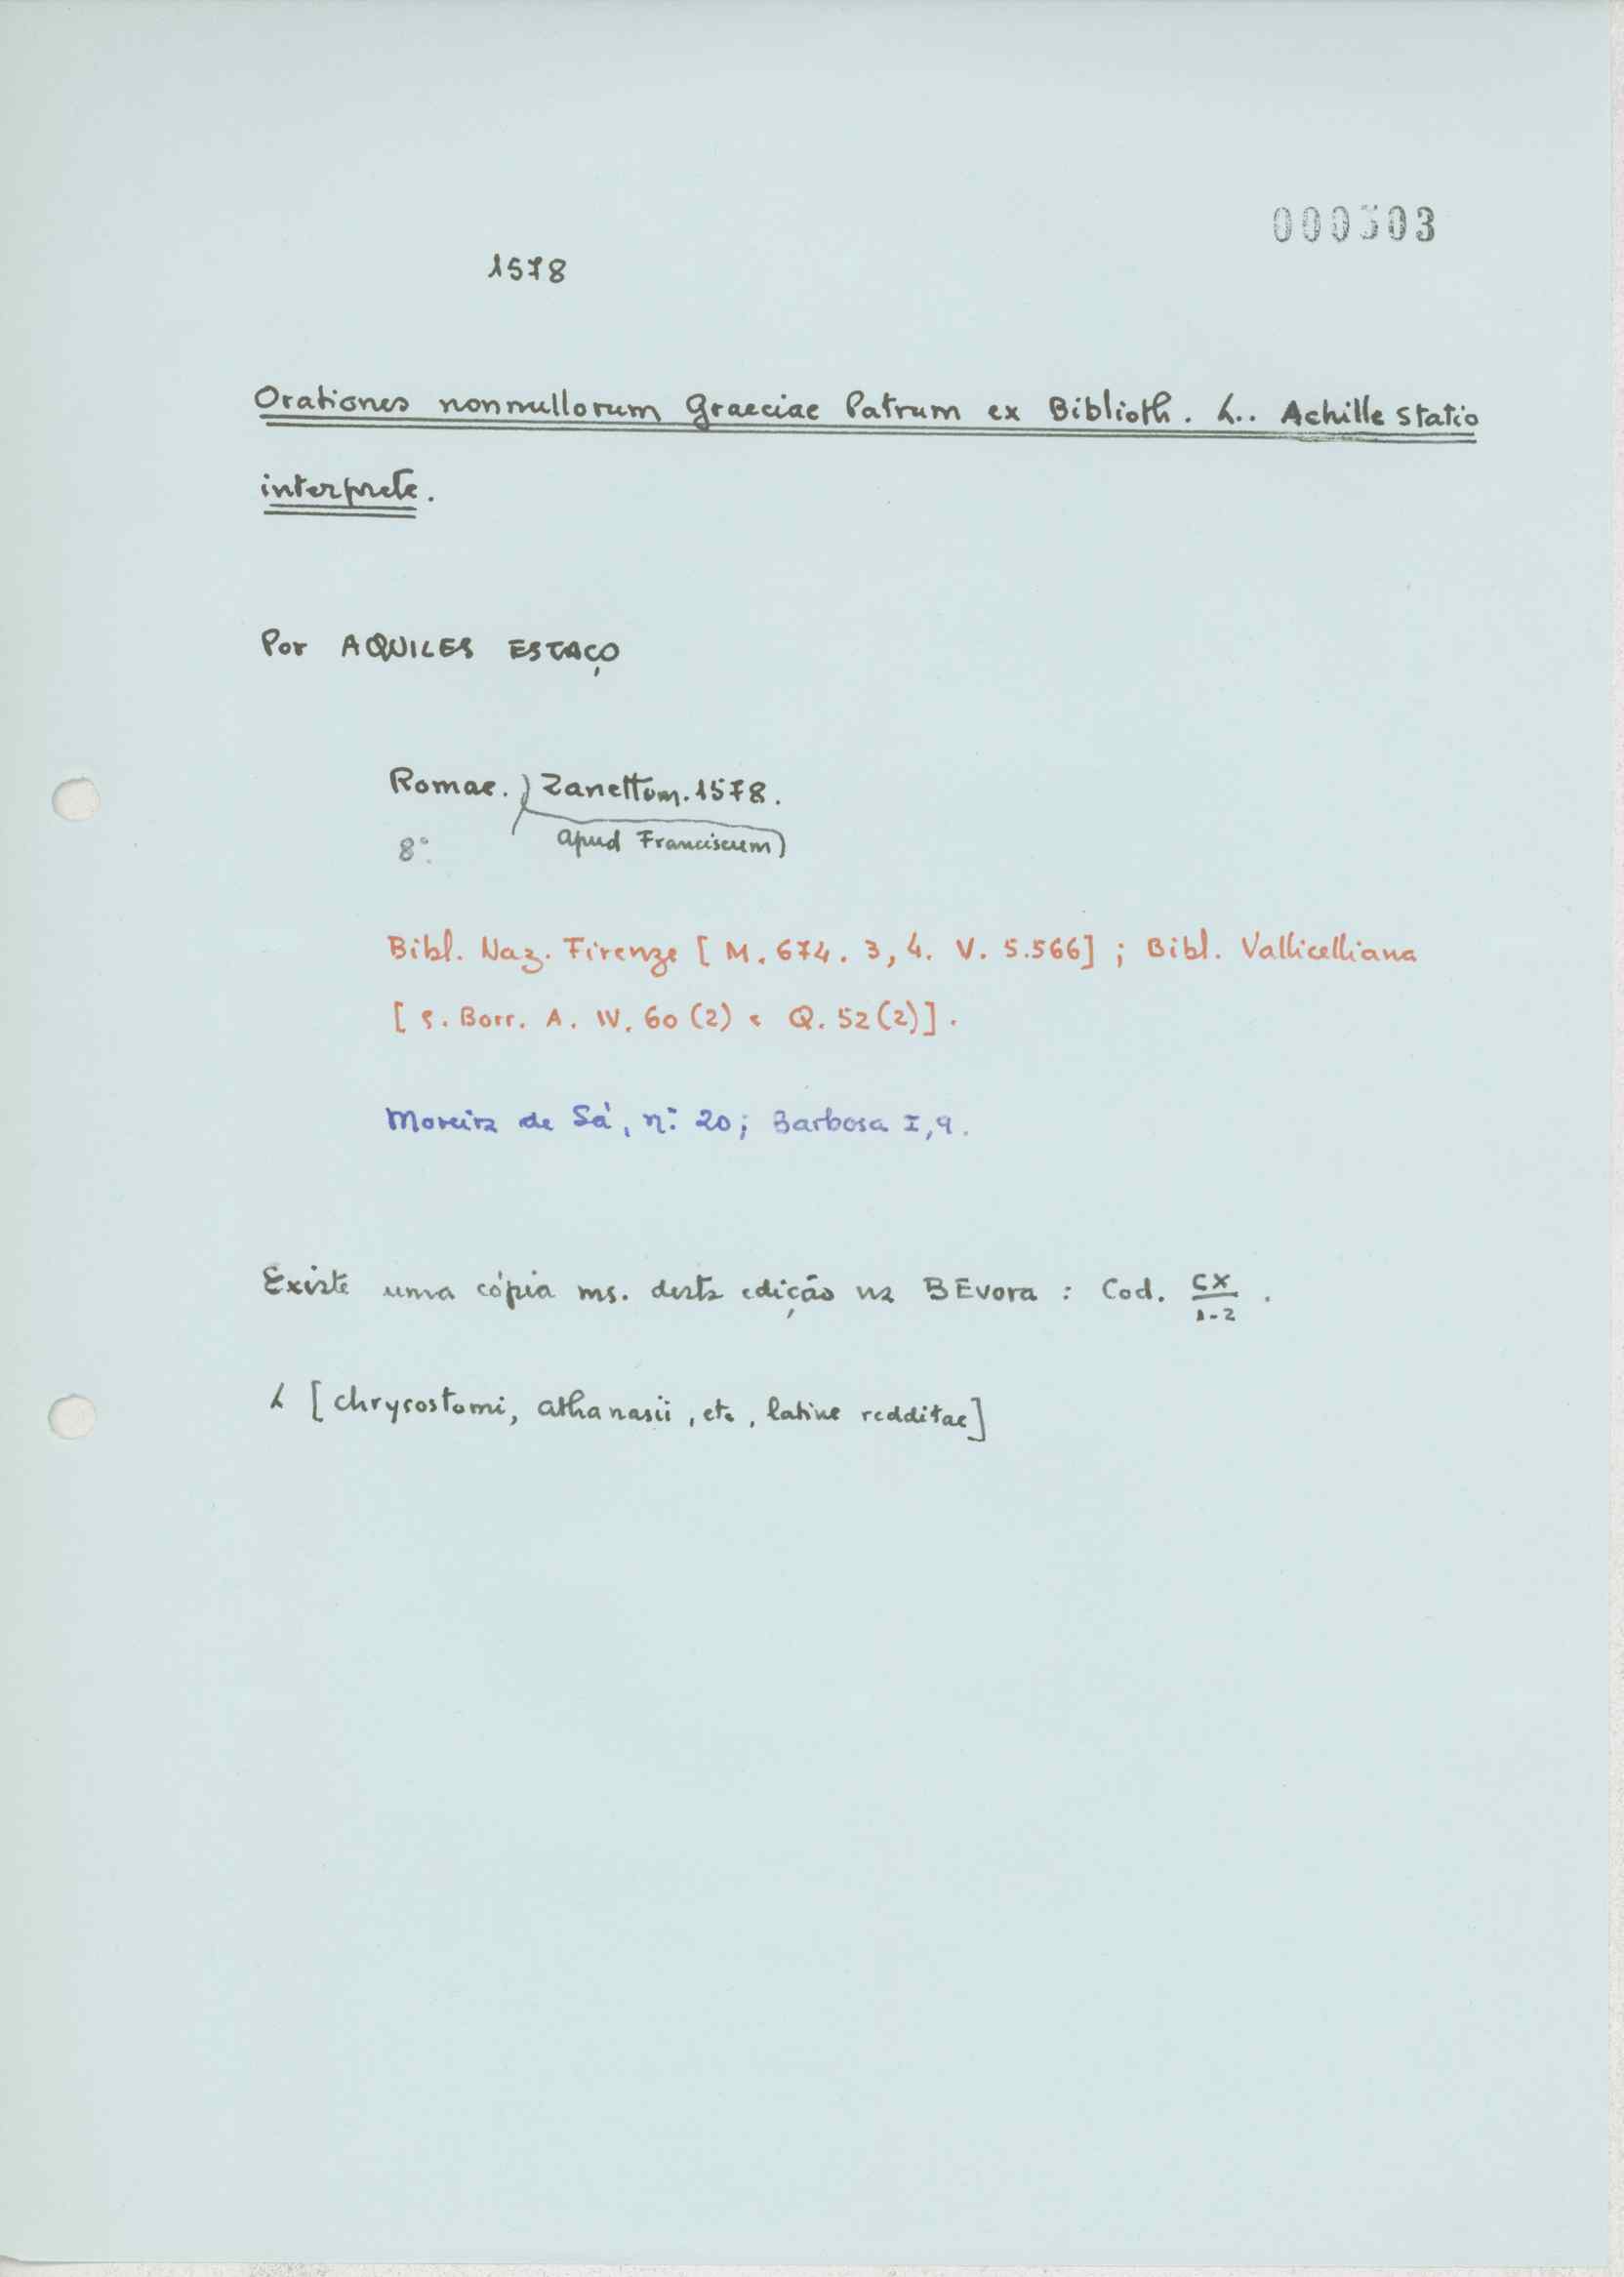 000303
1578
Orationes nonnullorum Graeciae Patrum ex Biblioth. L.. Achille Statio
interprete.
Por AQUILES ESTAÇO
Romae. Zanettum. 1578.
8º. apud Franciscum)
Bibl. Naz. Firenze [ M. 674. 3, 4. V. 5.566] ; Bibl. Vallicelliana
[ S. Borr. A. IV. 60 (2) e Q. 52 (2)] .
Moreira de Sá, nº 20; Barbosa I, 9.
Existe uma cópia ms. desta edição na BEvora : Cod. CX/1-2 .
L [ chrysostomi, athanasii, etc, latine redditae]